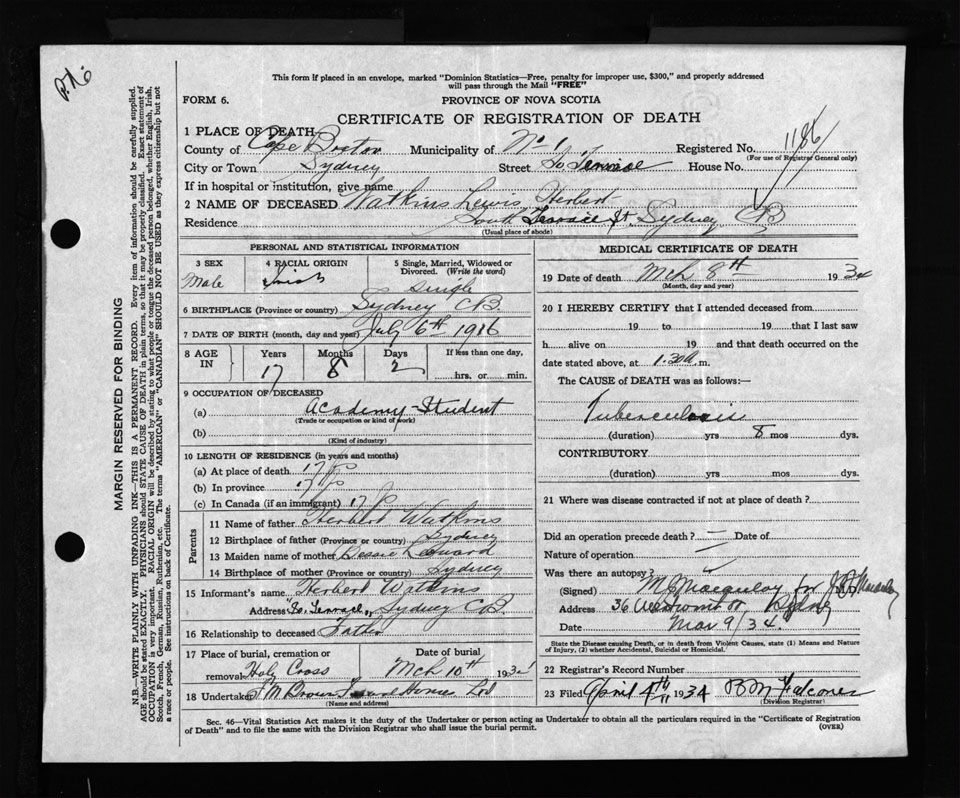 P.No
This form if placed in an envelope, marked "Dominion Statistics—Free, penalty for improper use, $300," and properly addressed
will pass through the Mail "FREE"
FORM 6.
PROVINCE OF NOVA SCOTIA
CERTIFICATE OF REGISTRATION OF DEATH
1 PLACE OF DEATH
County of Cape Breton Municipality of No 1 Registered No. 1186
(For use of Registrar General only)
City or Town Sydney Street So Terrace House No.
If in hospital or institution, give name
2 NAME OF DECEASED Watkins Lewis Herbert
Residence South Terrace St Sydney CB
(Usual place of abode)
PERSONAL AND STATISTICAL INFORMATION
3 SEX Male
4 RACIAL ORIGIN Irish
5 Single, Married, Widowed or
Divorced. (Write the word)
Single
6 BIRTHPLACE (Province or country) Sydney CB.
7 DATE OF BIRTH (month, day and year) July 6th 1916
8 AGE IN Years 17 Months 8 Days 2 If less than one day,
hrs. or min.
9 OCCUPATION OF DECEASED
(a) Academy-Student
(Trade or occupation or kind of work)
(b)
(Kind of industry)
10 LENGTH OF RESIDENCE (in years and months)
(a) At place of death 17
(b) In province 17
(c) In Canada (if an immigrant) 17
Parents
11 Name of father Herbert Watkins
12 Birthplace of father (Province or country) Sydney
13 Maiden name of mother Bessie
14 Birthplace of mother (Province or country) Sydney
15 Informant's name Herbert Watkins
Address So. Terrace, Sydney CB
16 Relationship to deceased Father
17 Place of burial, cremation or
removal Holy Cross Mch 10th 193
18 Undertaker Brown
(Name and address)
MEDICAL CERTIFICATE OF DEATH
19 Date of death Mch 8th 1934
(Month, day and year)
20 I HEREBY CERTIFY that I attended deceased from
19 to 19 that I last saw
h alive on 19 and that death occurred on the
date stated above, at 1.30 a.m.
The CAUSE of DEATH was as follows:—
Tuberculosis
(duration) yrs 8 mos dys.
CONTRIBUTORY
(duration) yrs mos dys.
21 Where was disease contracted if not at place of death ?
Did an operation precede death ? — Date of
Nature of operation —
Was there an autopsy?
(Signed) for
Address 36 Sydney
Date Mar 9/34.
State the Disease causing Death, or in death from Violent Causes, state (1) Means and Nature
of Injury, (2) whether Accidental, Suicidal or Homicidal.
22 Registrar's Record Number
23 Filed April 4th 1934 Falconer
(Division Registrar)
Sec. 46—Vital Statistics Act makes it the duty of the Undertaker or person acting as Undertaker to obtain all the particulars required in the "Certificate of Registration
of Death" and to file the same with the Division Registrar who shall issue the burial permit.
(OVER)
MARGIN RESERVED FOR BINDING
N.B.—WRITE PLAINLY WITH UNFADING INK—THIS IS A PERMANENT RECORD. Every item of information should be carefully supplied.
AGE should be stated EXACTLY. PHYSICIANS should STATE CAUSE OF DEATH in plain terms, so that it may be properly classified. Exact statement of
OCCUPATION is very important. RACIAL ORIGIN will be described by stating to what people or tongue the deceased person belonged, whether English, Irish,
Scotch, French, German, Russian, Ruthenian, etc. The terms "AMERICAN" or "CANADIAN" SHOULD NOT BE USED as they express citizenship but not
a race or people. See instructions on back of Certificate.